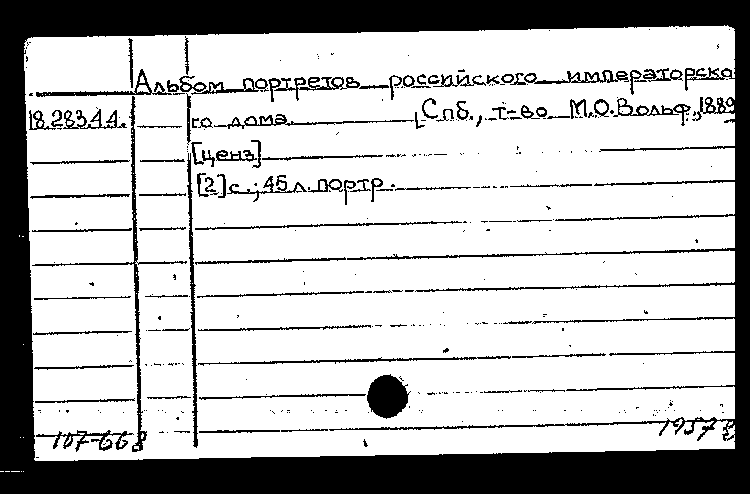 Альбом портретов российского императорско
18.283.4.4. го дома. [Спб., т-во М.О.Вольф, 1889
[ценз]
[2] с.; 45 л. портр.
107-668 1957